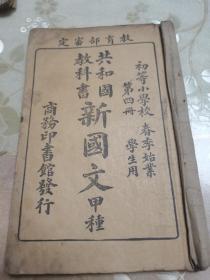 教育部審定
初等小學校 春季始業
第四冊 學生用
共和國
教科書
新國文
甲種
商務印書館發行